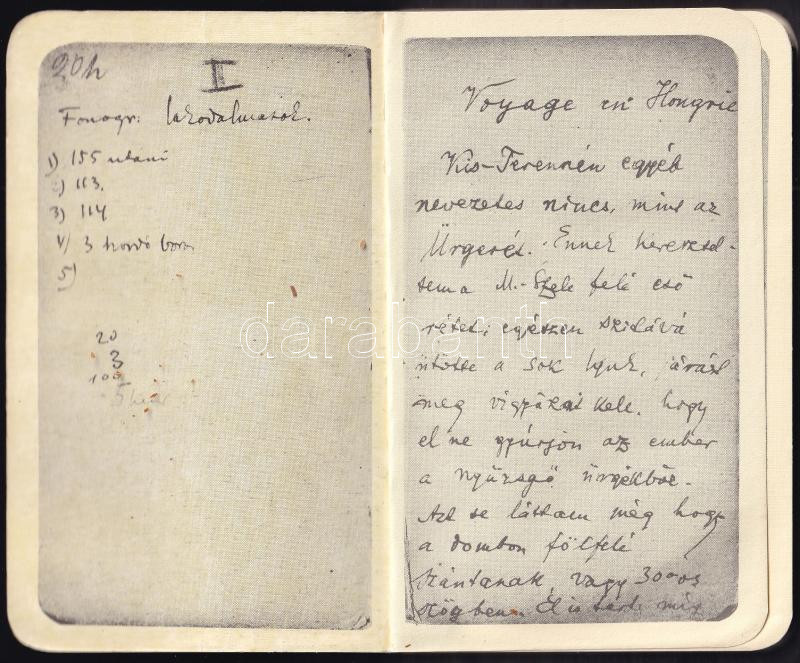 20h
I
Fonogr: lakodalmasok.
1) 155 utáni
2) 113.
3) 114
4/ 3 hordó bor
5)
20
3
100
Voyage en Hongrie
Kis-Terennén egyéb
nevezetes nincs, mint az
Ürgerét. Ennek keresztel-
tem a M.-Szele felé eső
rétet; egészen szitává
ütötte a sok lyuk, járást
meg vigyázni kell, hogy
el ne gyúrjon az ember
a nyüzsgő ürgékből.
Azt se láttam még hogy
a dombon fölfelé
szántanak, vagy 30°-os
szögben. El is tart míg
darabanth